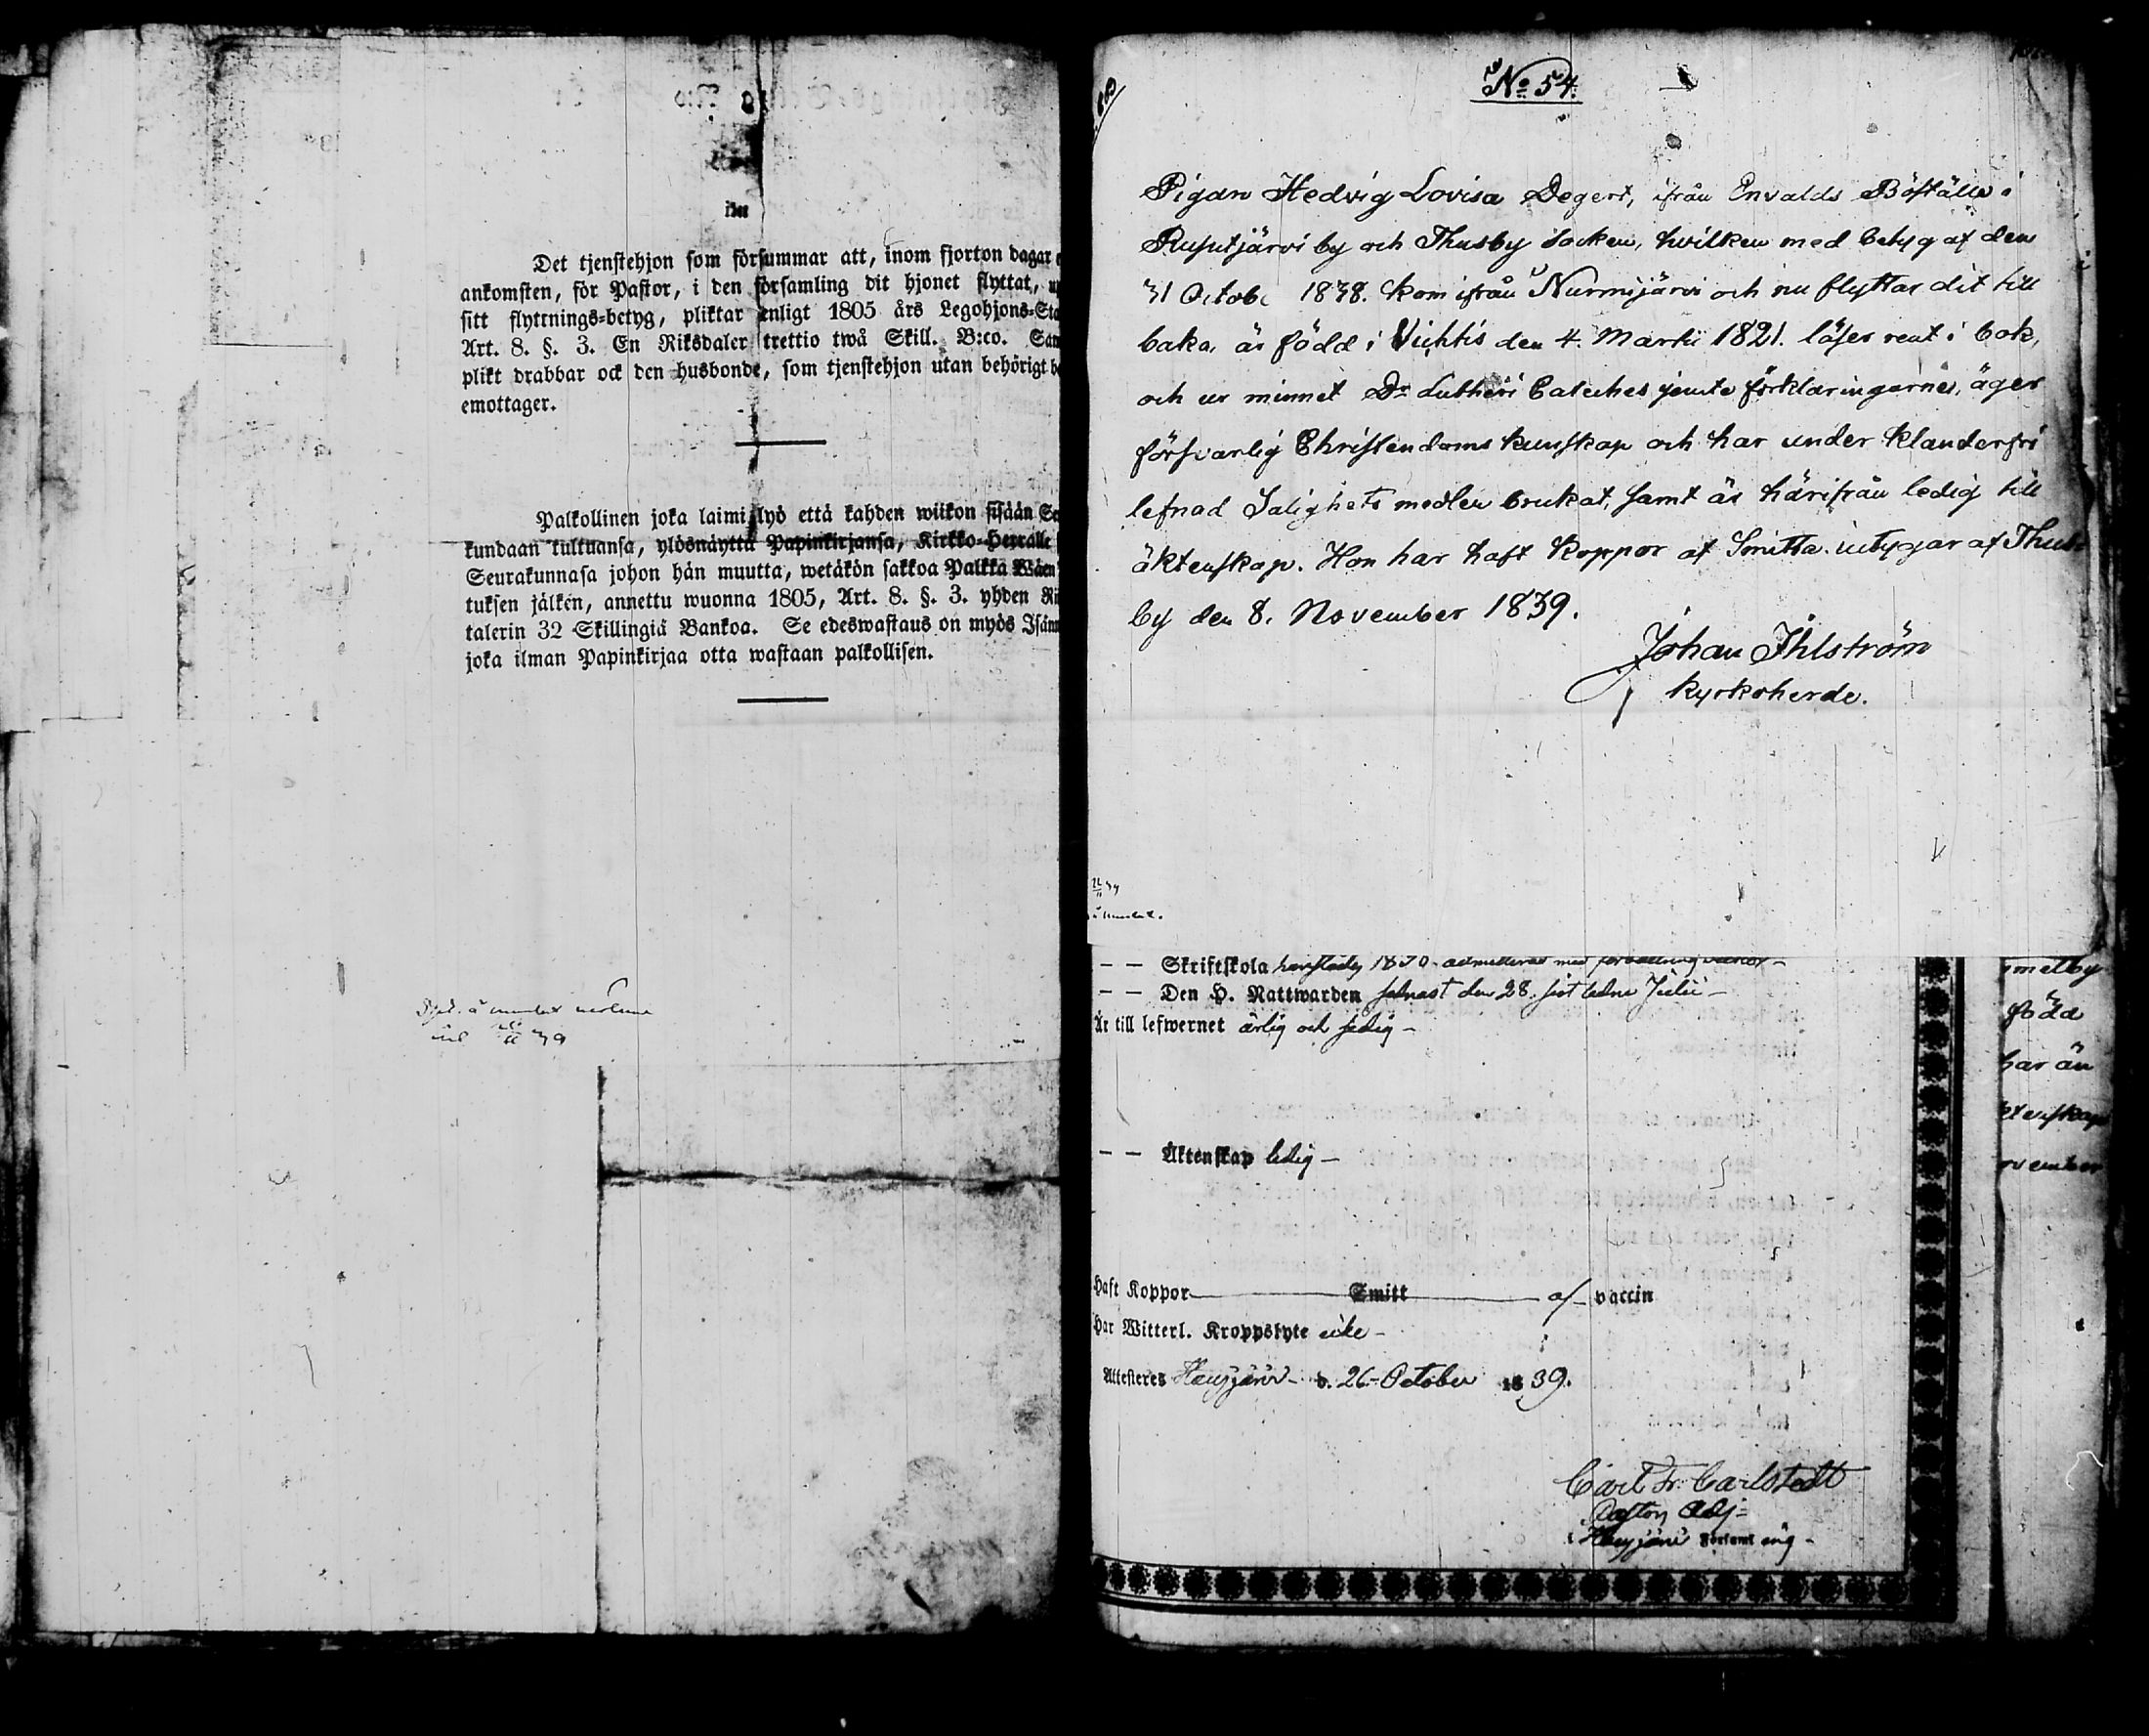 Det tjenstehjon som försummar att, inom fjorton dagar
ankomsten, för Pastor, i den församling dit hjonet flyttat,
sitt flyttnings=betyg, pliktar enligt 1805 års Legohjons=Sta
Art. 8. §. 3. En Riksdaler trettio twå Skill. B:co. Sam
plikt drabbar ock den husbonde, som tjenstehjon utan behörigt be
emottager.
Palkollinen joka laimilyö että kahden wiikon sisään Se
kundaan tultuansa, ylösnäyttä Papinkirjansa, Kirkko=Herralle
Seurakunnasa johon hän muutta, wetäkön sakkoa Palkka Wäen
tuksen jälken, annettu wuonna 1805, Art. 8. §. 3. yhden Ri
talerin 32 Skillingiä Bankoa. Se edeswastaus on myös Isänn
joka ilman Papinkirjaa otta wastaan palkollisen.
No 54.
Pigan Hedvig Lovisa Degert, ifrån Envalds Böställe i
Rusutjärvi by och Thusby Socken, hvilken med betyg af den
31 Octob. 1838. kom ifrån Nurmijärvi och nu flyttar dit till
baka, är född i Vichtis den 4. Martii 1821. läser rent i bok,
och ur minnet Dr Lutheri Cateches jemte förklaringarne, äger
försvarlig Christendoms kunskap och har under klanderfri
lefnad Salighets medlen brukat, samt är härifrån ledig till
äktenskap. Hon har haft koppor af Smitta. intygar af Thus-
by den 8. November 1839.
Johan Ihlström
Kyrkoherde.
– – Skriftskola 1830. admitterad med
– – Den H. Nattwarden senast den 28. sist ledne Julii –
Är till lefwernet ärlig och sedig –
– – Äktenskap ledig –
Haft Koppor Smitt af vaccin
Har Witterl. Kroppslyte icke –
Attesteres Hausjärvi d. 26 October 1839.
Carl Fr. Carlstedt
Pastors Adj=
i Hausjärvi Församling –
melby
född
har än
ktenskap
ovember